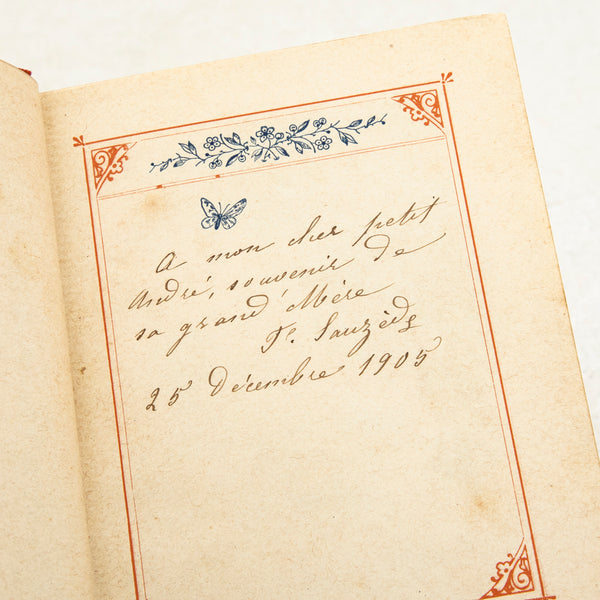 A mon cher petit
André, souvenir de
sa grand'Mère
25 Décembre 1905